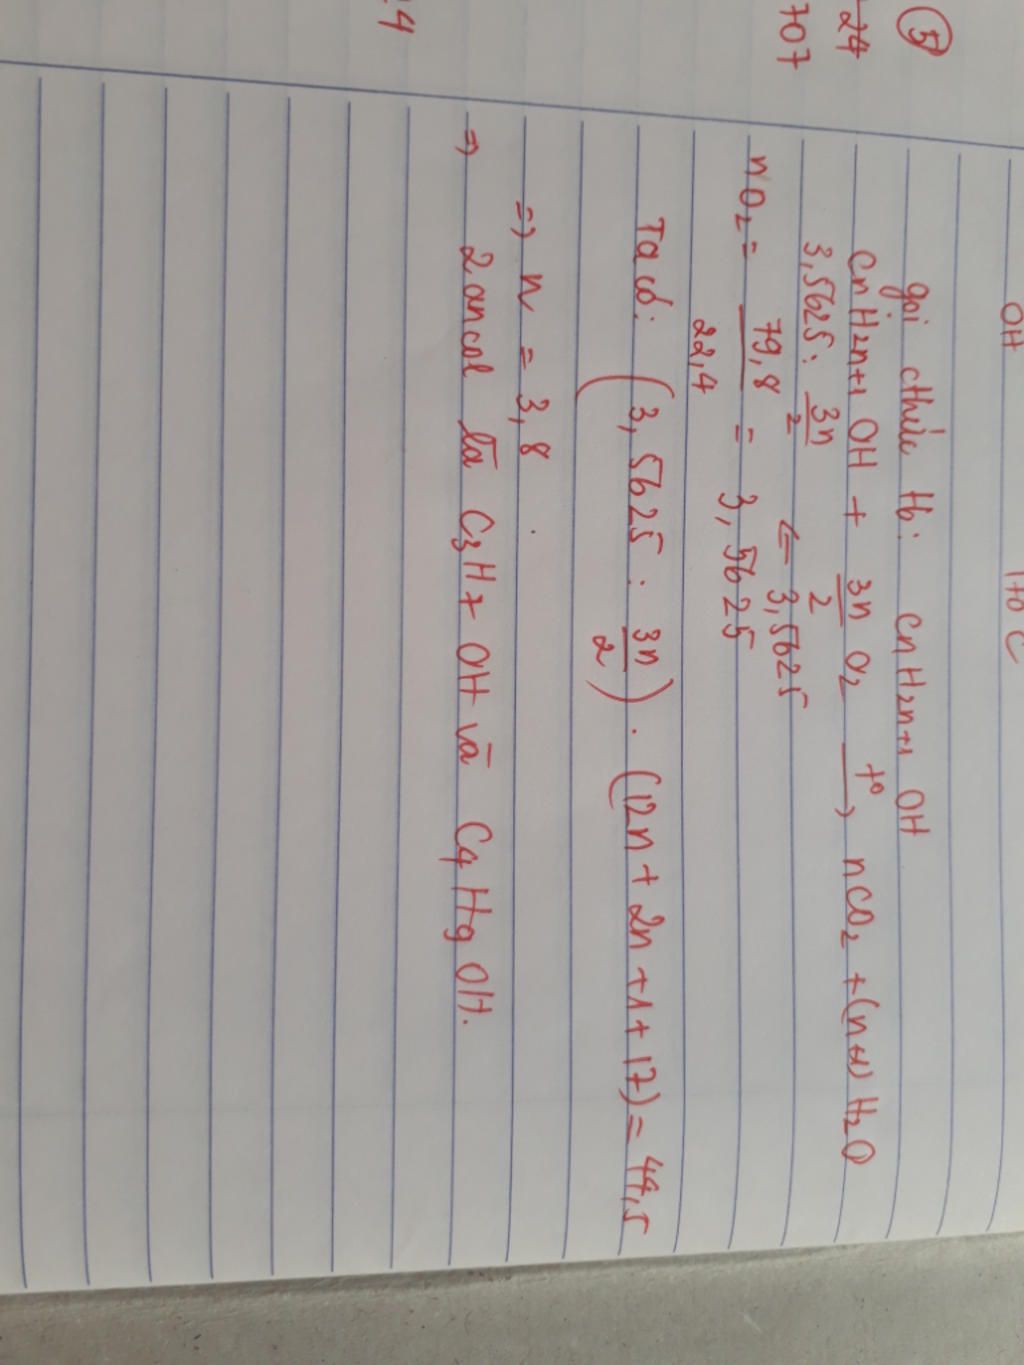 OH 170 C
5
24
707
gọi cthức tb: CnH2n+1 OH
CnH2n+1 OH + 3n/2 O2 t° → nCO2 + (n+1) H2O
3,5625 : 3n/2 ← 3,5625
nO2 = 79,8/22,4 = 3,5625
Ta có: (3,5625 : 3n/2) . (12n + 2n + 1 + 17) = 44,5
=> n = 3,8 .
=> 2 ancol là C3H7 OH và C4H9 OH.
4